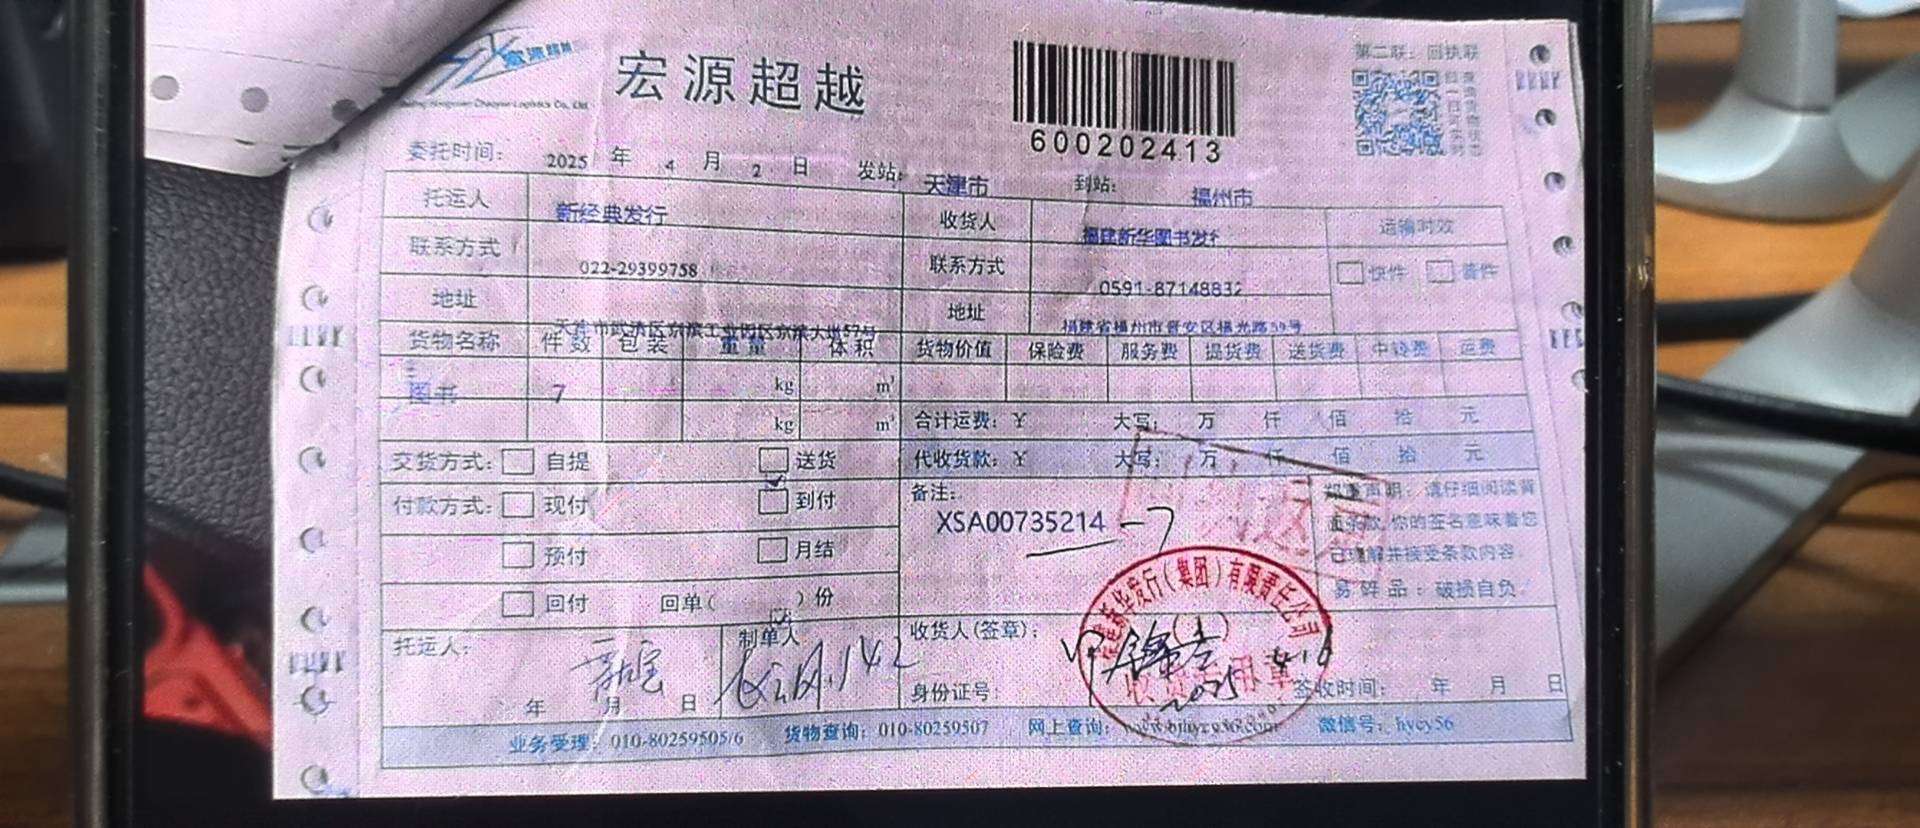 宏源超越
第二联：回执联
600202413
委托时间： 2025 年 4 月 2 日 发站： 天津市 到站： 福州市
托运人 新经典发行 收货人 福建新华图书发行 运输时效
联系方式 022-29399758 联系方式 0591-87148832 快件 普件
地址 天津市武清区京滨工业园区京滨大道57号 地址 福建省福州市晋安区福光路39号
货物名称 件数 包装 重量 体积 货物价值 保险费 服务费 提货费 送货费 中转费 运费
图书 7 kg m³
kg m³ 合计运费：￥ 大写： 万 仟 佰 拾 元
交货方式： 自提 送货 代收货款：￥ 大写： 万 仟 佰 拾 元
付款方式： 现付 到付 备注： 郑重声明：请仔细阅读背
XSA00735214 -7 面条款，你的签名意味着您
预付 月结 已理解并接受条款内容
回付 回单（ ）份 易碎品：破损自负
托运人： 制单人 收货人(签章)：
福建新华发行（集团）有限责任公司
收货专用章
2025 4.10
年 月 日 身份证号： 签收时间： 年 月 日
业务受理：010-80259505/6 货物查询：010-80259507 网上查询： 微信号：hycy56